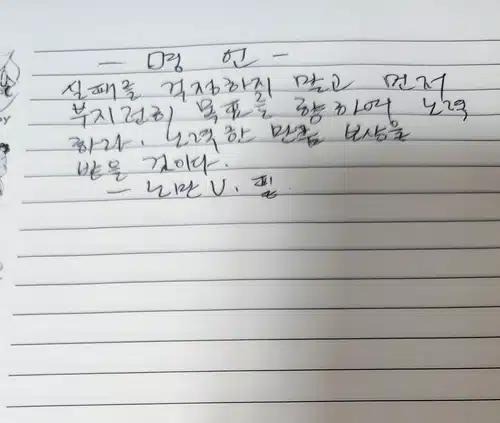 - 명 언 -
실패를 걱정하지 말고 먼저
부지런히 목표를 향하여 노력
하라. 노력한 만큼 보상을
받을 것이다.
- 노만 V. 필